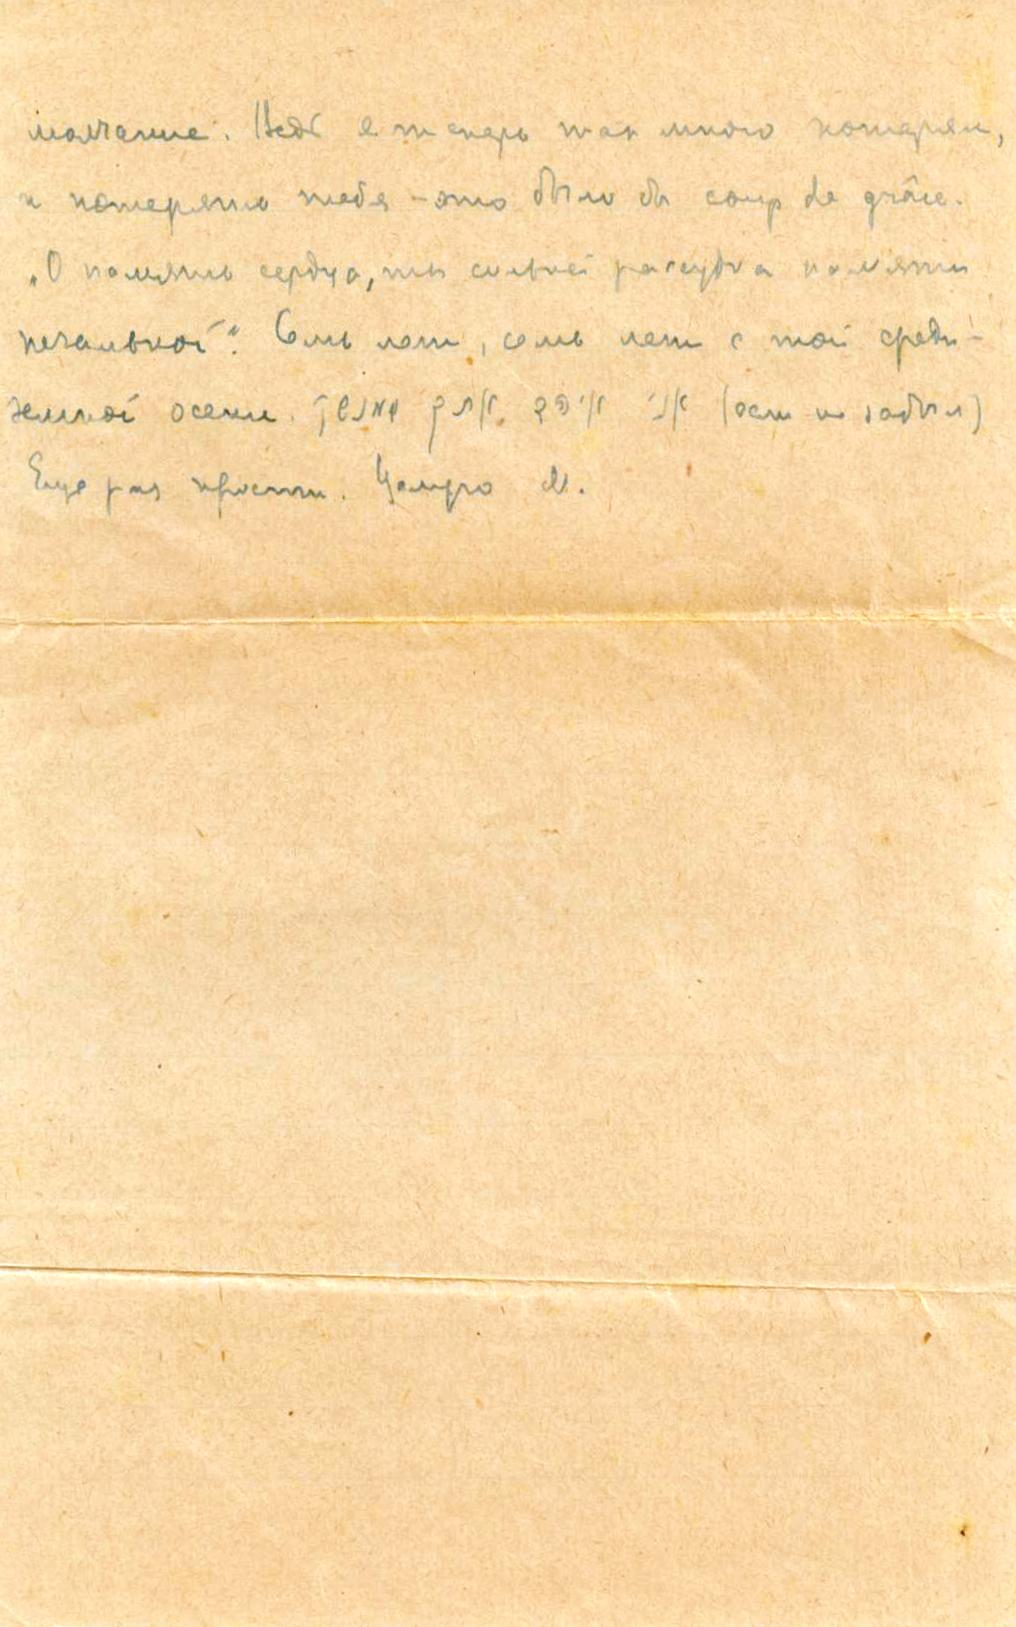 молчание. Ведь я теперь так много потерял,
и потерять тебя – это было бы coup de grâce.
„О память сердца, ты сильней рассудка памяти
печальной“. Семь лет, семь лет с той среди-
земной осени. אני אוהב אותך (если не забыл)
Еще раз прости. Целую М.